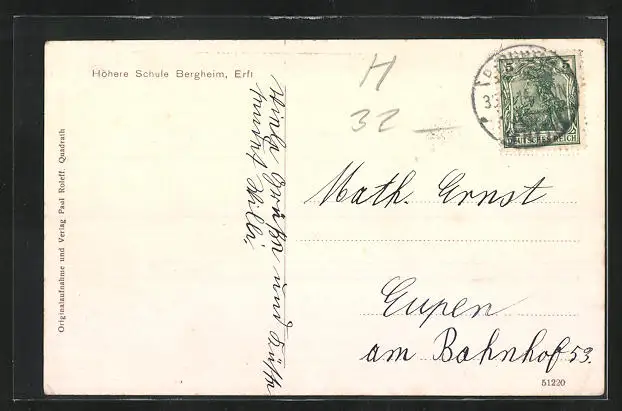 Höhere Schule Bergheim, Erft
Originalaufnahme und Verlag Paul Roleff. Quadrath
Viele Grüße und Küsse
sendet Willi.
H
32
5 5
DEUTSCHES REICH
Math. Ernst
Eupen
am Bahnhof 53.
51220